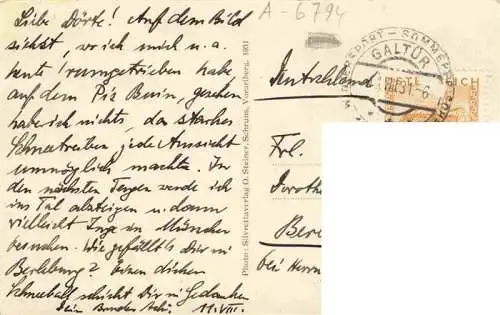 Liebe Dörte! Auf dem Bild
siehst, wo ich mich u. a.
heute rumgetrieben habe,
auf dem Piz Buin, gesehen
habe ich nichts, da starkes
Schneetreiben jede Aussicht
unmöglich machte. In
den nächsten Tagen werde ich
ins Tal absteigen u. dann
vielleicht Inge in München
besuchen. Wie gefällt's Dir in
Berleburg? Einen dicken
Schneeball schickt Dir in Gedanken
Dein Bruder
11. VIII.
Photo: Silvrettaverlag O. Steiner, Schruns, Vorarlberg. 1951
A-6794
GALTÜR
Deutschland
Frl.
Dorothe
Berl
bei Herrn